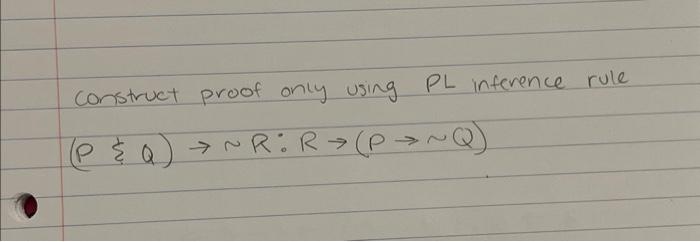 construct proof only using PL inference rule
(P & Q) → ~R : R → (P → ~Q)